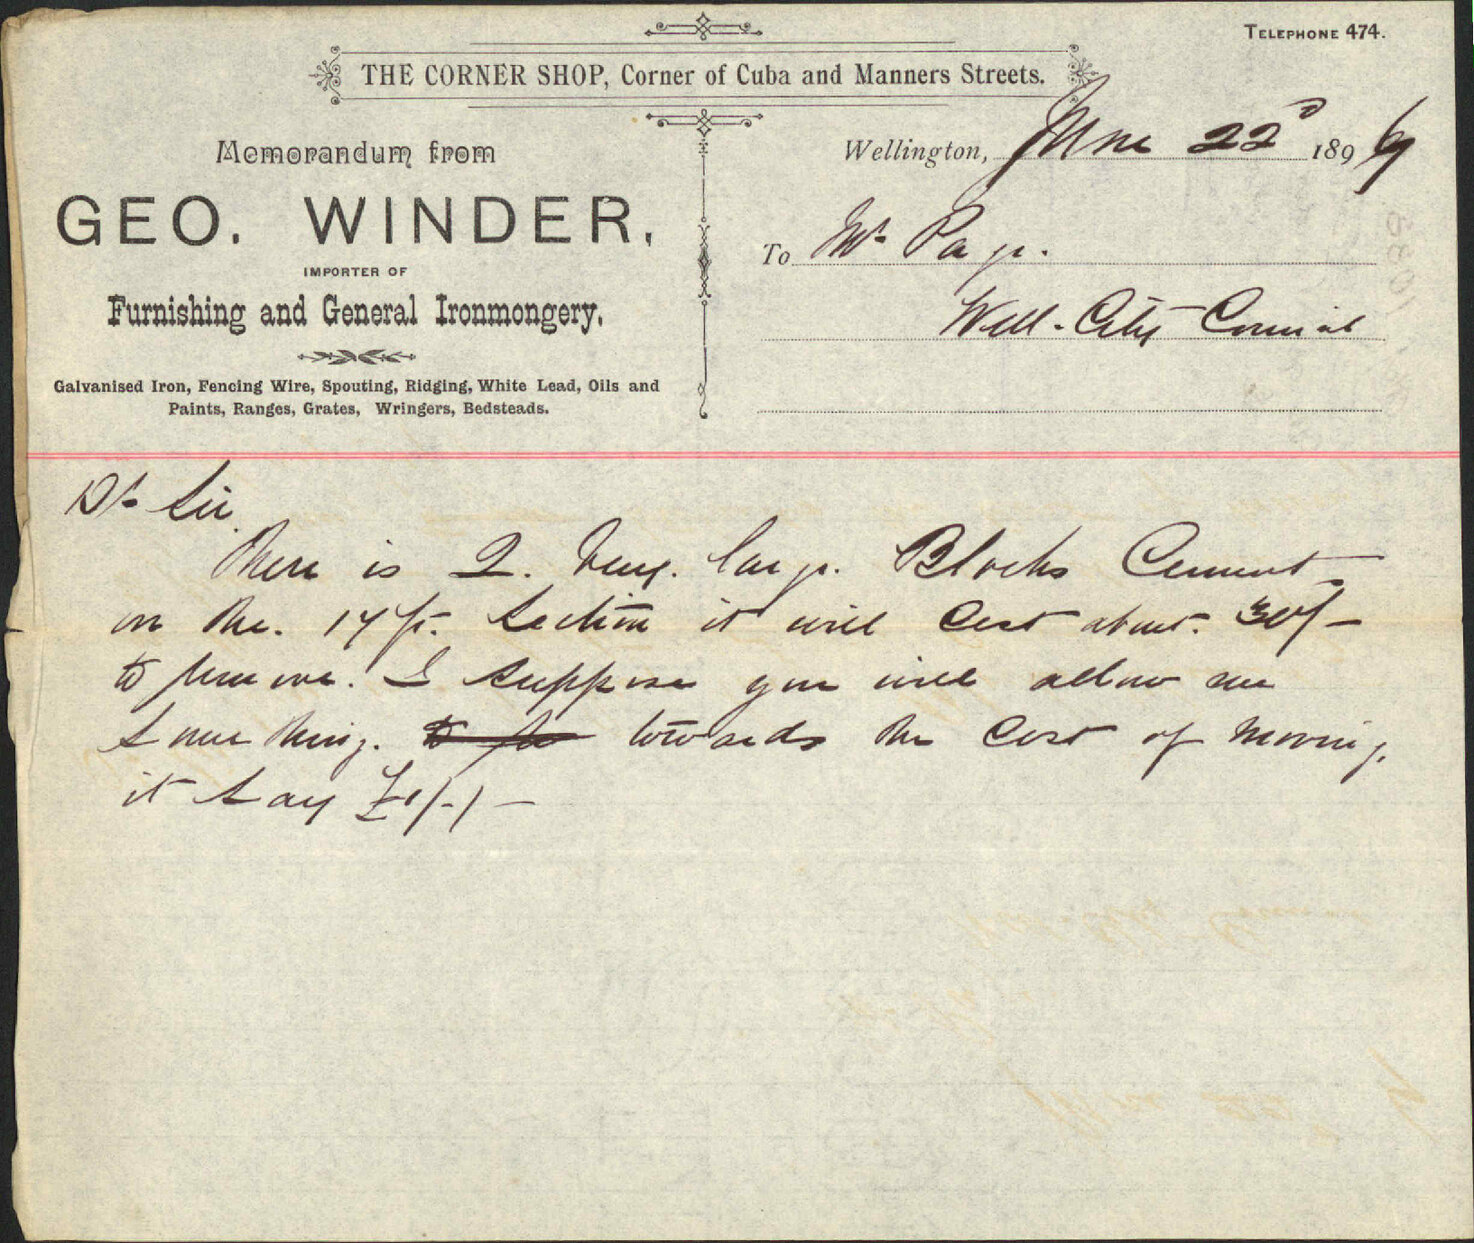 TELEPHONE 474.
THE CORNER SHOP, Corner of Cuba and Manners Streets.
Memorandum from
GEO. WINDER,
IMPORTER OF
Furnishing and General Ironmongery.
Galvanised Iron, Fencing Wire, Spouting, Ridging, White Lead, Oils and
Paints, Ranges, Grates, Wringers, Bedsteads.
Wellington, June 22d 189
To Mr Page.
Well. City Council
Dr Sir
There is 2. Very. large. Blocks Cement
on the. 14 ft. Section it will Cost about. 30/-
to remove. I suppose you will allow me
Something. towards the Cost of moving,
it Say £1/-/-